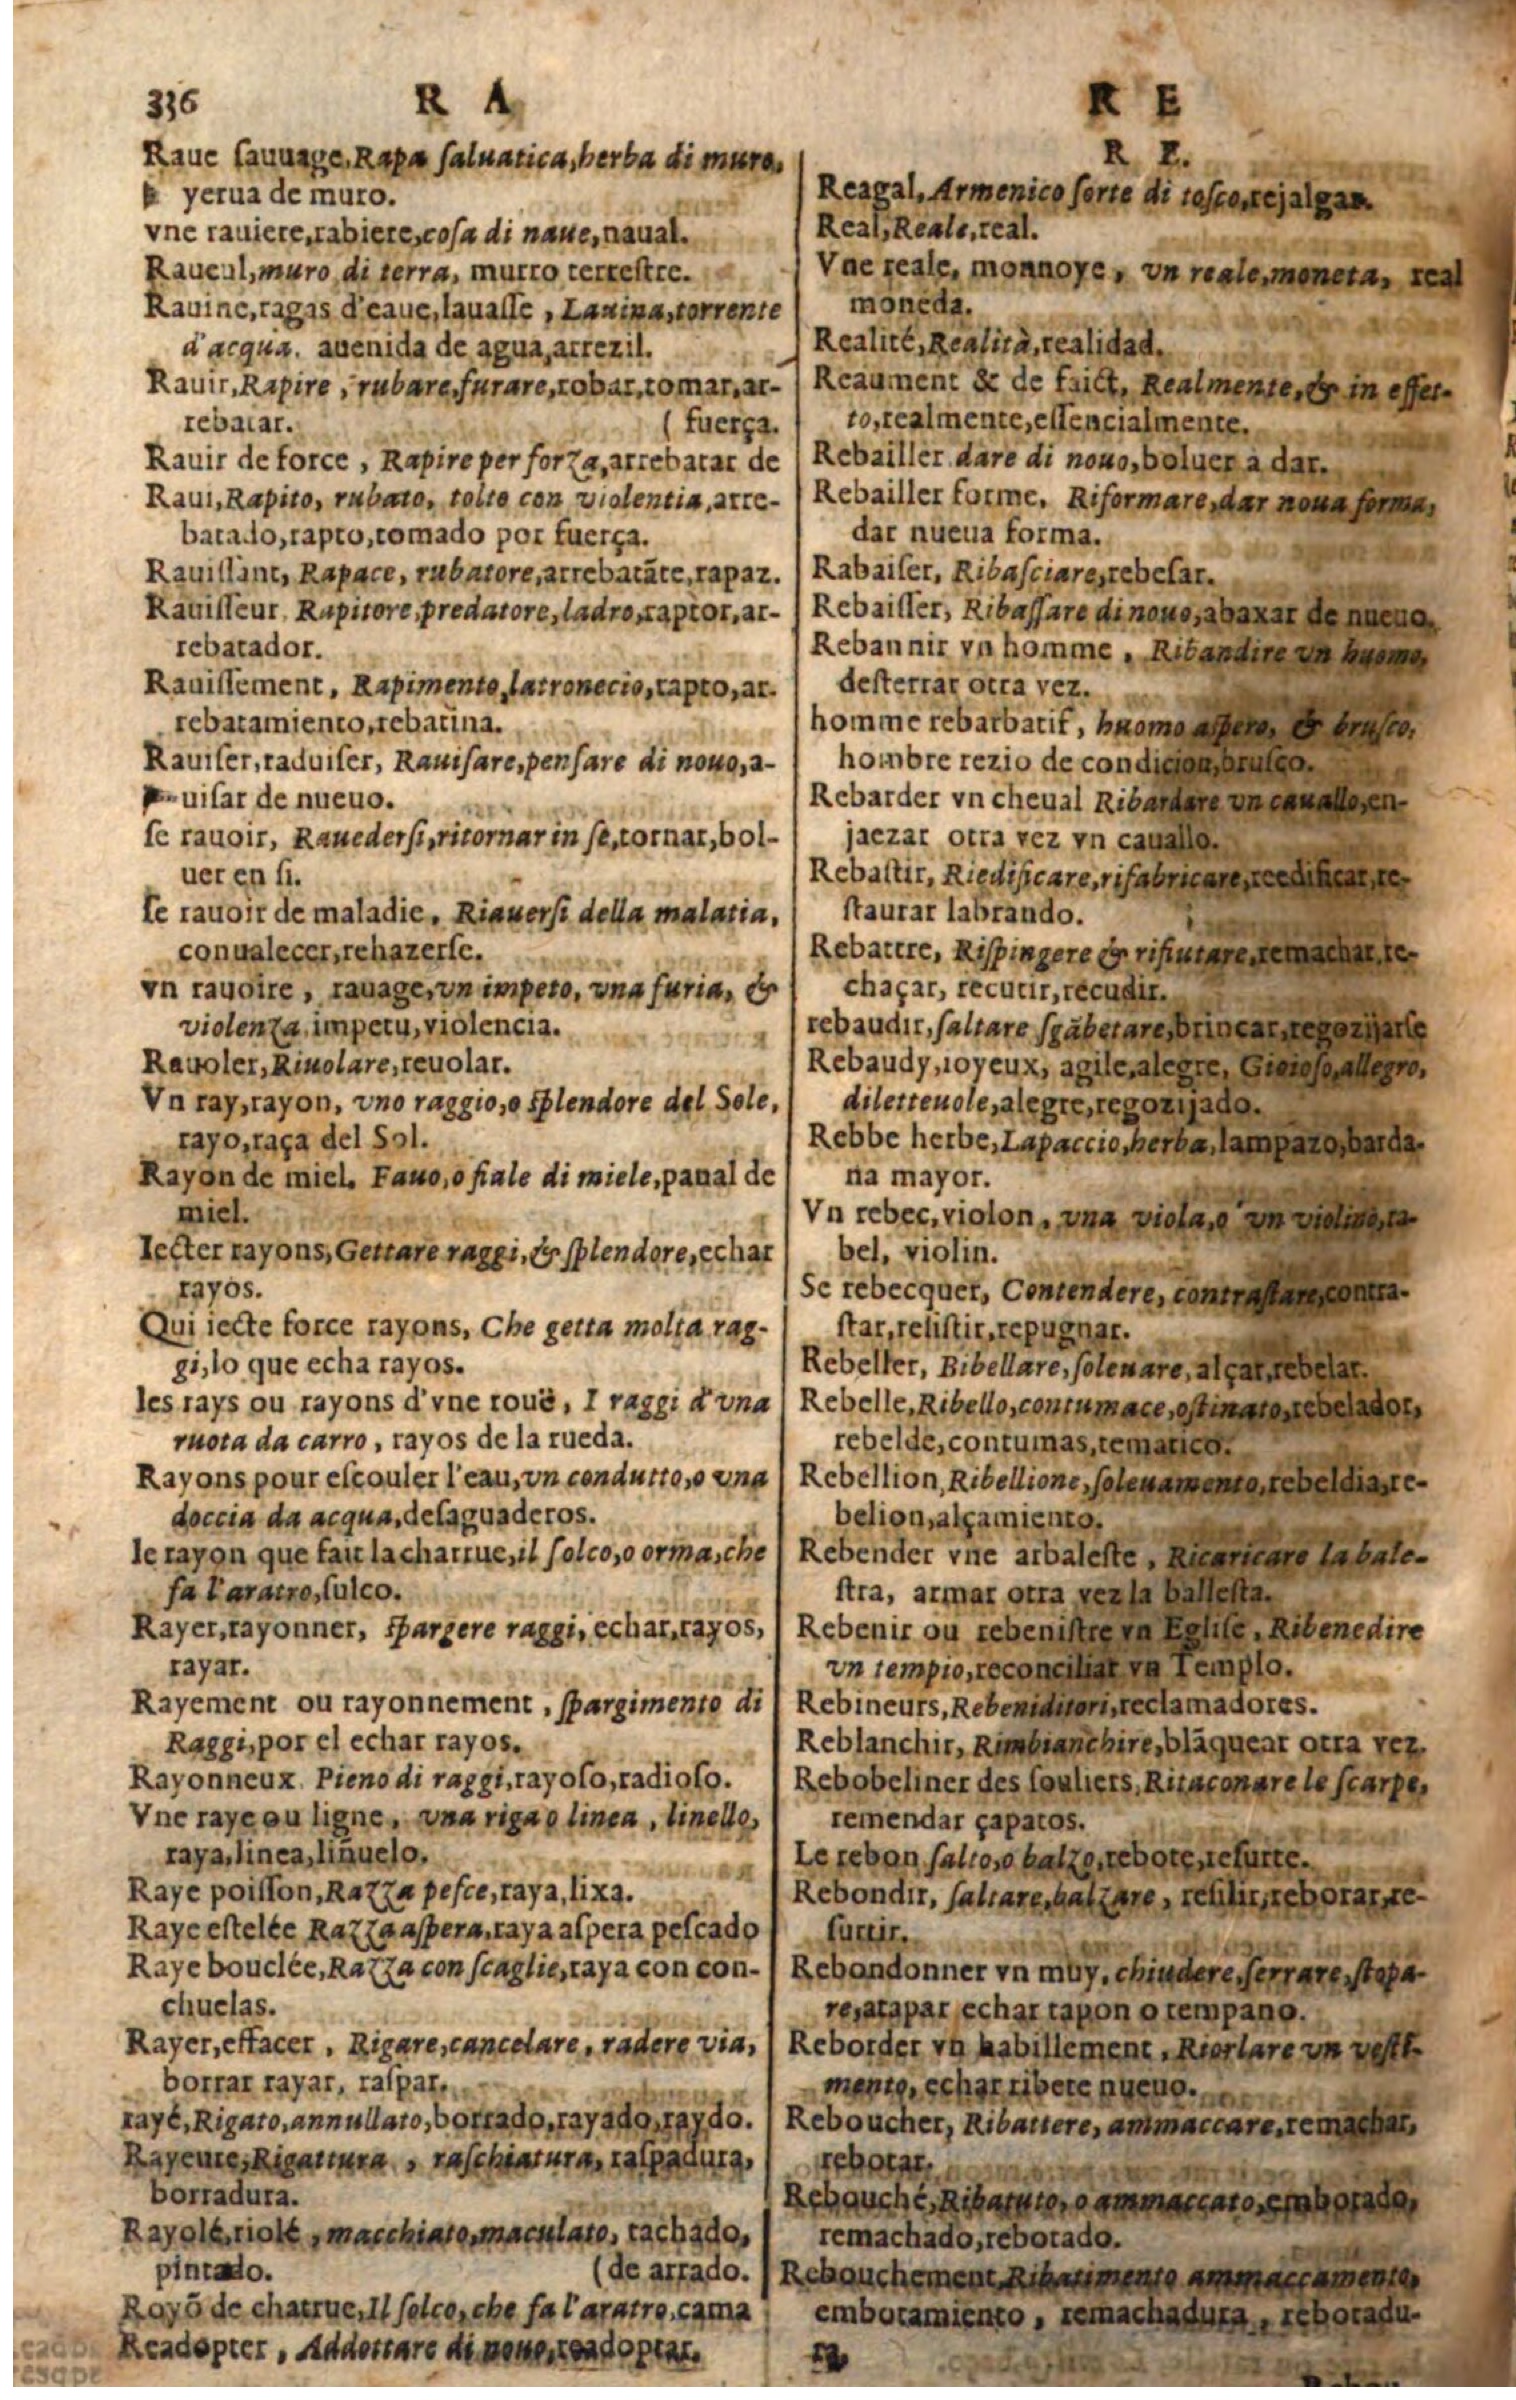 336 R A
Raue sauuage, Rapa saluatica, herba di muro,
yerua de muro.
vne rauiere, rabiere, cosa di naue, naual.
Raueul, muro di terra, murro terrestre.
Rauine, ragas d'eaue, lauasse, Lauina, torrente
d'acqua. auenida de agua, arrezil.
Rauir, Rapire, rubare, furare, robar, tomar, ar-
rebatar. ( fuerça.
Rauir de force, Rapire per forza, arrebatar de
Raui, Rapito, rubato, tolto con violentia, arre-
batado, rapto, tomado por fuerça.
Rauissant, Rapace, rubatore, arrebatãte, rapaz.
Rauisseur, Rapitore, predatore, ladro, raptor, ar-
rebatador.
Rauissement, Rapimento, latronecio, rapto, ar-
rebatamiento, rebatina.
Rauiser, raduiser, Rauisare, pensare di nouo, a-
uisar de nueuo.
se rauoir, Rauedersi, ritornar in se, tornar, bol-
uer en si.
se rauoir de maladie, Riauersi della malatia,
conualecer, rehazerse.
vn rauoire, rauage, vn impeto, vna furia, &
violenza. impetu, violencia.
Rauoler, Riuolare, reuolar.
Vn ray, rayon, vno raggio, o splendore del Sole,
rayo, raça del Sol.
Rayon de miel. Fauo, o fiale di miele, panal de
miel.
Iecter rayons, Gettare raggi, & splendore, echar
rayos.
Qui iecte force rayons, Che getta molta rag-
gi, lo que echa rayos.
les rays ou rayons d'vne rouë, I raggi d'vna
ruota da carro, rayos de la rueda.
Rayons pour escouler l'eau, vn condutto, o vna
doccia da acqua, desaguaderos.
le rayon que fait la charrue, il solco, o orma, che
fa l'aratro, sulco.
Rayer, rayonner, spargere raggi, echar, rayos,
rayar.
Rayement ou rayonnement, spargimento di
Raggi, por el echar rayos.
Rayonneux Pieno di raggi, rayoso, radioso.
Vne raye ou ligne, vna riga o linea, linello,
raya, linea, liñuelo.
Raye poisson, Razza pesce, raya, lixa.
Raye estelée Razza aspera, raya aspera pescado
Raye bouclée, Razza con scaglie, raya con con-
chuelas.
Rayer, effacer, Rigare, cancelare, radere via,
borrar rayar, raspar.
rayé, Rigato, annullato, borrado, rayado, raydo.
Rayeure, Rigattura, raschiatura, raspadura,
borradura.
Rayolé, riolé, macchiato, maculato, tachado,
pintado. (de arrado.
Royõ de charrue, Il solco, che fa l'aratro, cama
Readopter, Addottare di nouo, readoptar.
R E
R E.
Reagal, Armenico sorte di tosco, rejalgar.
Real, Reale, real.
Vne reale, monnoye, vn reale, moneta, real
moneda.
Realité, Realità, realidad.
Reaument & de faict, Realmente, & in effet-
to, realmente, essencialmente.
Rebailler dare di nouo, boluer a dar.
Rebailler forme, Riformare, dar noua forma,
dar nueua forma.
Rabaiser, Ribasciare, rebesar.
Rebaisser, Ribassare di nouo, abaxar de nueuo.
Rebannir vn homme, Ribandire vn huomo,
desterrar otra vez.
homme rebarbatif, huomo aspero, & brusco,
hombre rezio de condicion, brusco.
Rebarder vn cheual Ribardare vn cauallo, en-
jaezar otra vez vn cauallo.
Rebastir, Riedificare, rifabricare, reedificar, re-
staurar labrando.
Rebattre, Rispingere & rifiutare, remachar, re-
chaçar, recutir, recudir.
rebaudir, saltare sgãbetare, brincar, regozijarse
Rebaudy, ioyeux, agile, alegre, Gioioso, allegro,
diletteuole, alegre, regozijado.
Rebbe herbe, Lapaccio, herba, lampazo, barda-
na mayor.
Vn rebec, violon, vna viola, o vn violino, ra-
bel, violin.
Se rebecquer, Contendere, contrastare, contra-
star, resistir, repugnar.
Rebeller, Bibellare, soleuare, alçar, rebelar.
Rebelle, Ribello, contumace, ostinato, rebelador,
rebelde, contumas, tematico.
Rebellion, Ribellione, soleuamento, rebeldia, re-
belion, alçamiento.
Rebender vne arbaleste, Ricaricare la bale-
stra, armar otra vez la ballesta.
Rebenir ou rebenistre vn Eglise, Ribenedire
vn tempio, reconciliar vn Templo.
Rebineurs, Rebeniditori, reclamadores.
Reblanchir, Rimbianchire, blãquear otra vez.
Rebobeliner des souliers, Ritaconare le scarpe,
remendar çapatos.
Le rebon salto, o balzo, rebote, resurte.
Rebondir, saltare, balzare, resilir, reborar, re-
surtir.
Rebondonner vn muy, chiudere, serrare, stopa-
re, atapar echar tapon o tempano.
Reborder vn habillement, Riorlare vn vesti-
mento, echar ribete nueuo.
Reboucher, Ribattere, ammaccare, remachar,
rebotar.
Rebouché, Ribatuto, o ammaccato, embotado,
remachado, rebotado.
Rebouchement, Ribatimento ammaccamento,
embotamiento, remachadura, rebotadu-
ra